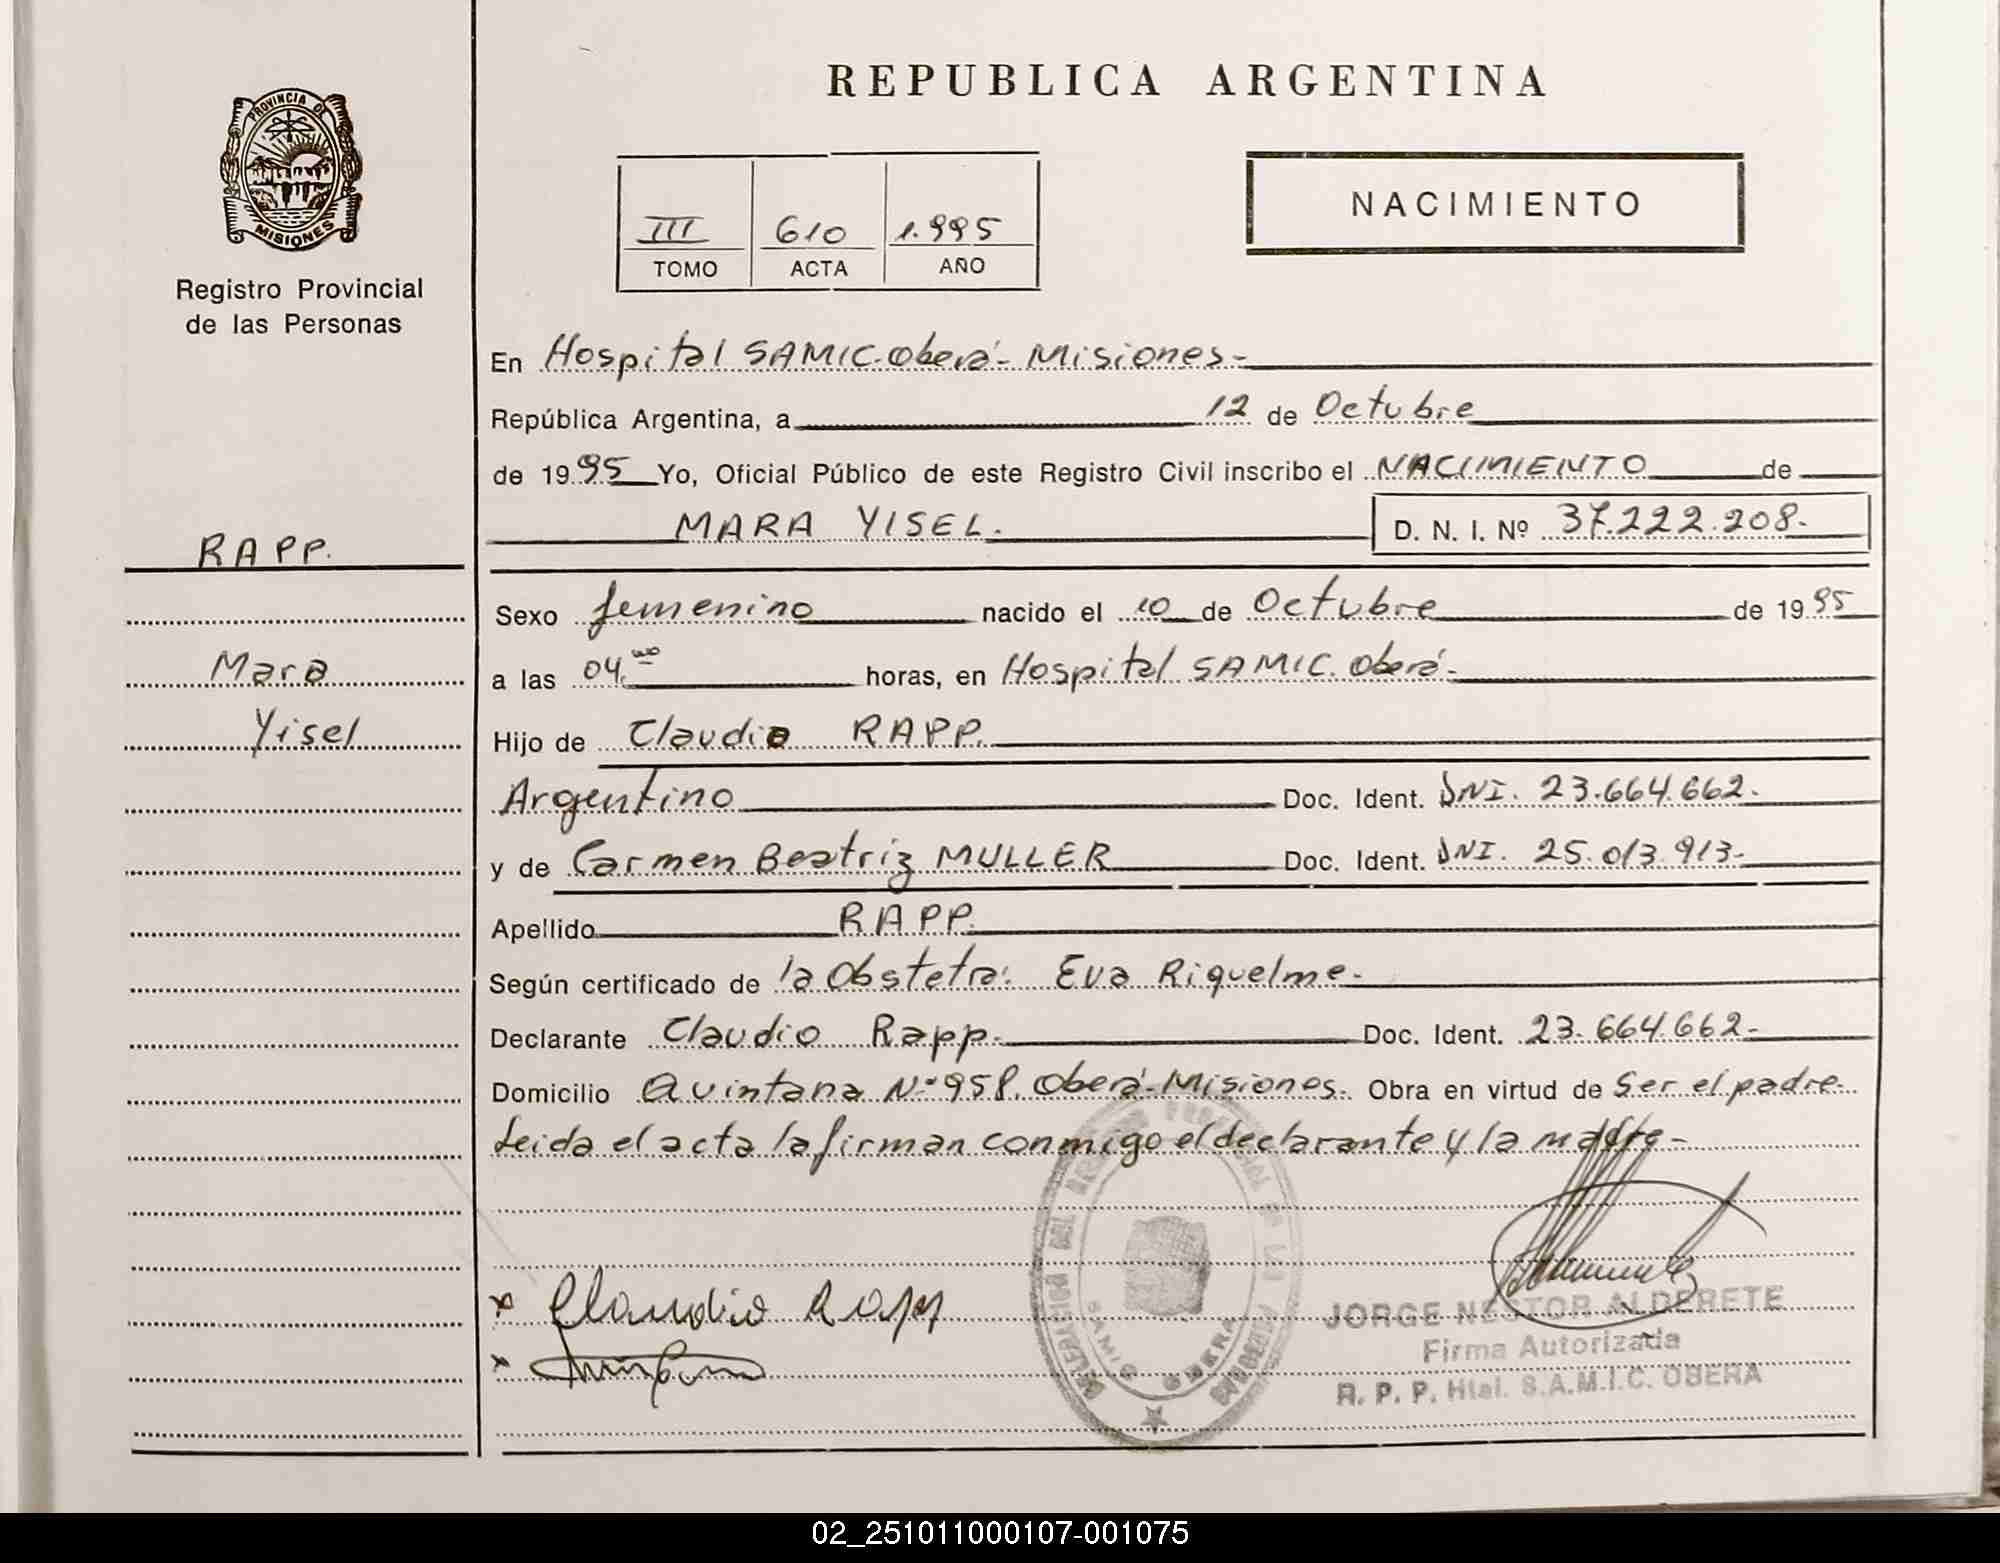 REPUBLICA ARGENTINA
PROVINCIA DE
MISIONES
Registro Provincial
de las Personas
III 610 1.995
TOMO ACTA AÑO
NACIMIENTO
En Hospital SAMIC. Oberá - Misiones -
República Argentina, a 12 de Octubre
de 1995 Yo, Oficial Público de este Registro Civil inscribo el NACIMIENTO de
MARA YISEL. D. N. I. Nº 37.222.208.
RAPP.
Mara
Yisel
Sexo femenino nacido el 10 de Octubre de 1995
a las 04.00 horas, en Hospital SAMIC. Oberá -
Hijo de Claudio RAPP.
Argentino Doc. Ident. DNI. 23.664.662.
y de Carmen Beatriz MULLER Doc. Ident. DNI. 25.013.913.
Apellido RAPP.
Según certificado de la Obstetra: Eva Riquelme.
Declarante Claudio Rapp. Doc. Ident. 23.664.662.
Domicilio Quintana Nº 958. Oberá - Misiones. Obra en virtud de Ser el padre.
Leida el acta la firman conmigo el declarante y la madre -
x Claudio Rapp
x
SAMIC OBERA
JORGE NESTOR ALDERETE
Firma Autorizada
R. P. P. Htal. S.A.M.I.C. OBERA
02_251011000107-001075